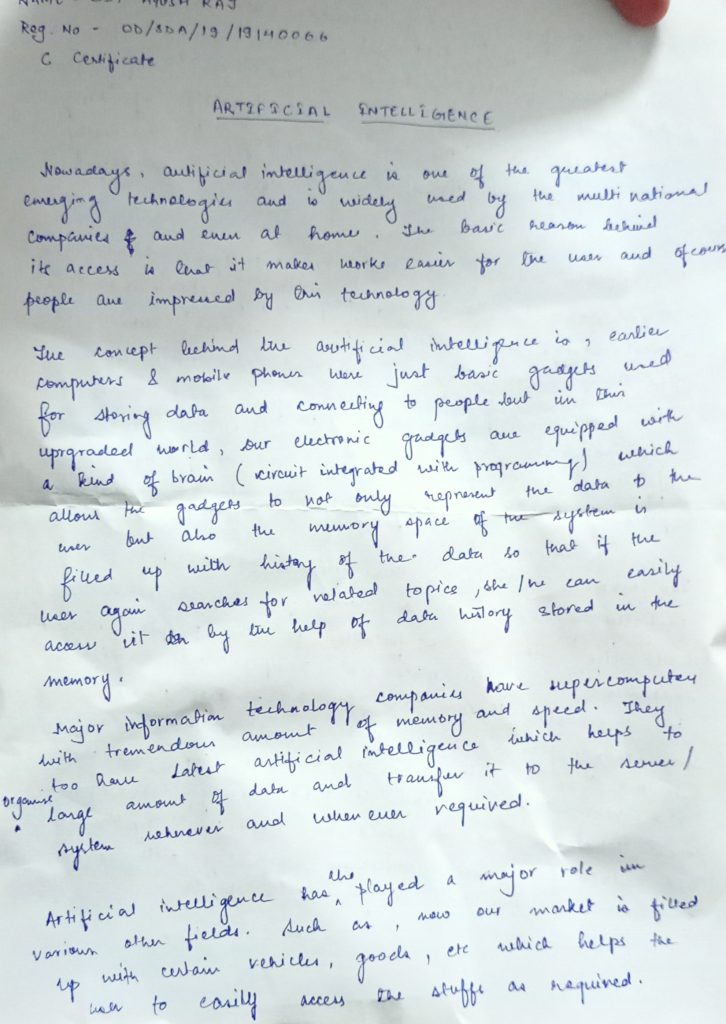 AYUSH RAJ
Reg. No - OD/SDA/19/19140066
C Certificate
ARTIFICIAL INTELLIGENCE
Nowadays, artificial intelligence is one of the greatest
emerging technologies and is widely used by the multi national
companies and even at home. The basic reason behind
its access is that it makes works easier for the user and ofcourse
people are impressed by this technology
The concept behind the artificial intelligence is, earlier
computers & mobile phones were just basic gadgets used
for storing data and connecting to people but in this
uprgraded world, our electronic gadgets are equipped with
a kind of brain (circuit integrated with programming) which
allows the gadgets to not only represent the data to the
user but also the memory space of the system is
filled up with history of the data so that if the
user again searches for related topics, she/he can easily
access it by the help of data history stored in the
memory.
Major information technology companies have supercomputers
with tremendous amount of memory and speed. They
too have latest artificial intelligence which helps to
organise large amount of data and transfer it to the server/
system whenever and when ever required.
Artificial intelligence has the played a major role in
various other fields. Such as, now our market is filled
up with certain vehicles, goods, etc which helps the
user to easily access the stuffs as required.